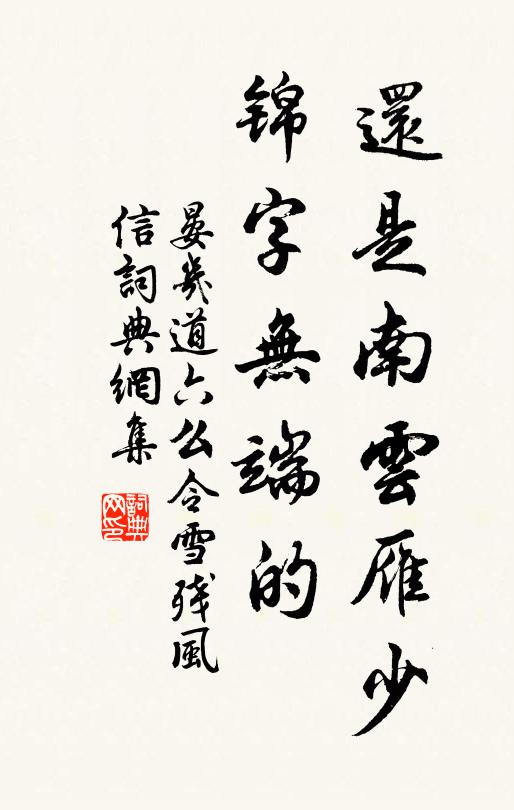 還是南雲雁少
錦字無端的
晏幾道六么令雪殘風
信詞典網集
詞典网印